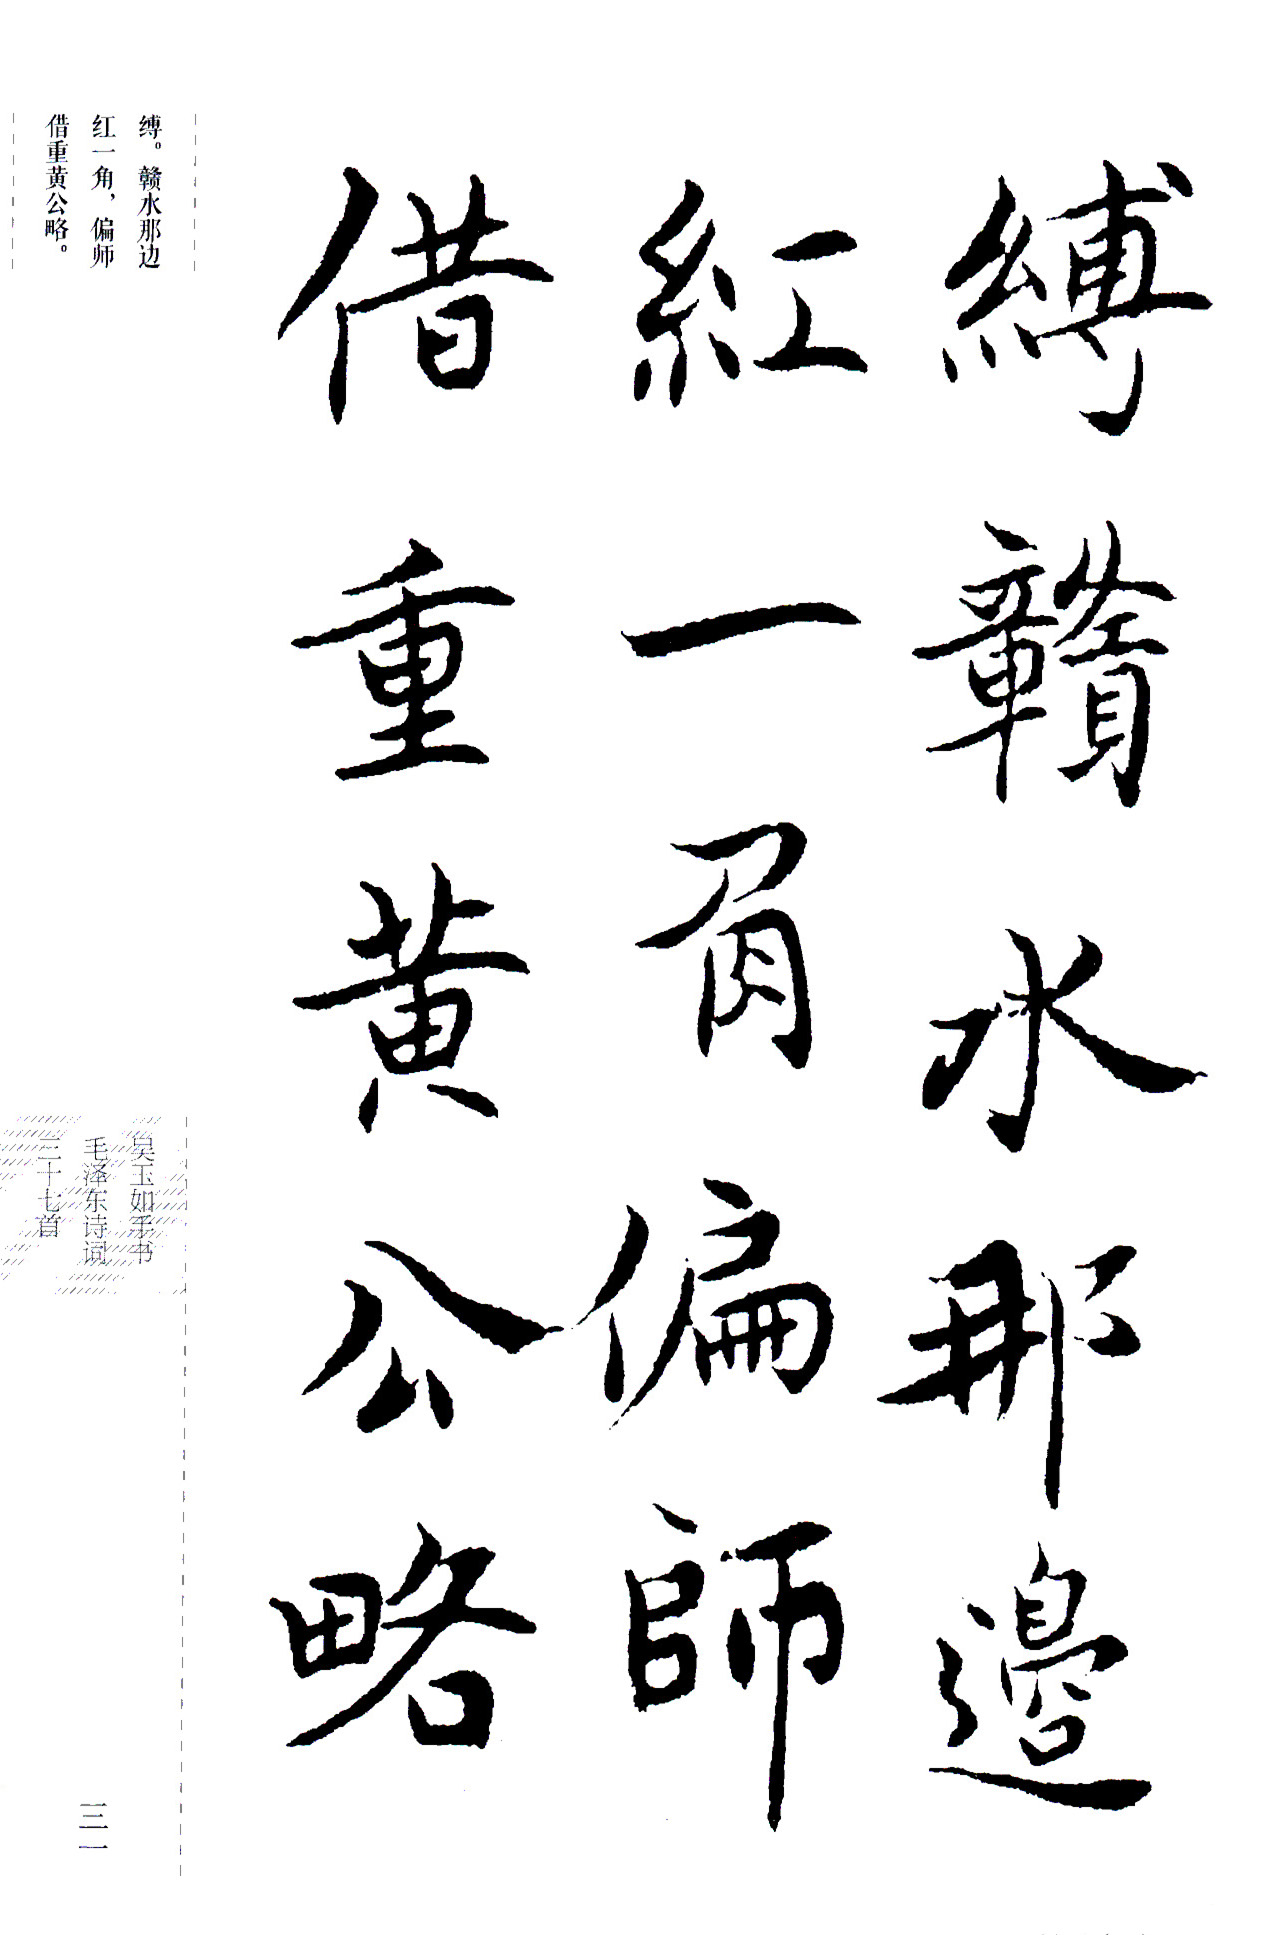 縛贛水那邊
紅一角偏師
借重黃公略
缚。赣水那边
红一角，偏师
借重黄公略。
吴玉如手书
毛泽东诗词
三十七首
三一